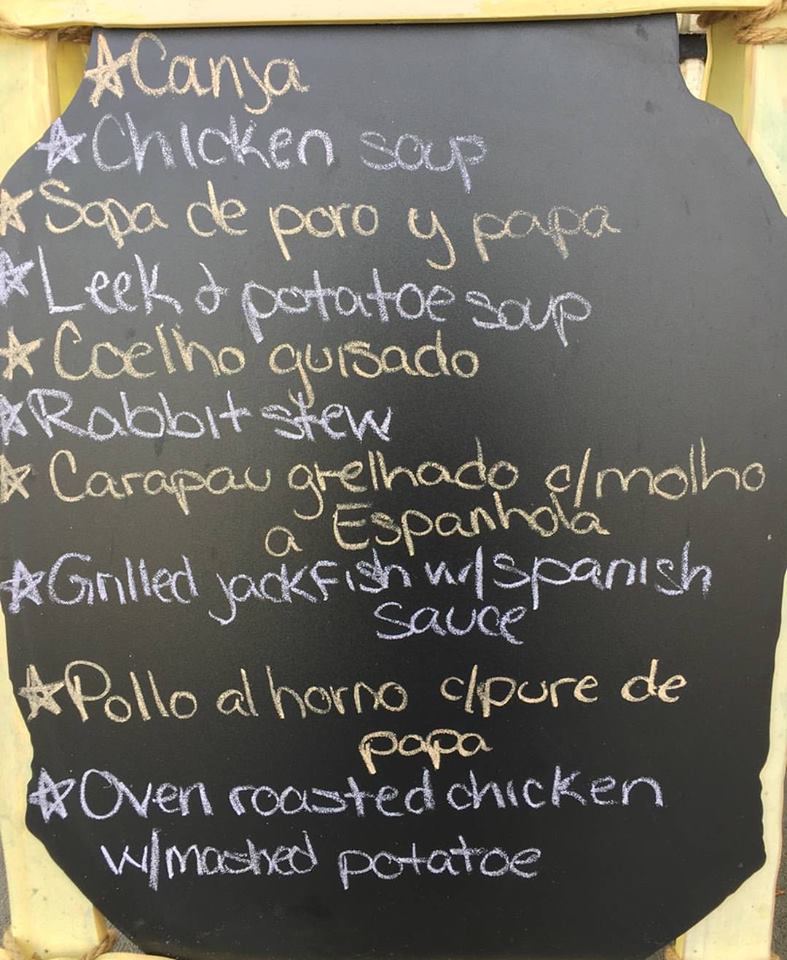 ☆Canja
☆Chicken soup
☆Sopa de poro y papa
☆Leek & potatoe soup
☆Coelho guisado
☆Rabbit stew
☆Carapau grelhado c/molho
a Espanhola
☆Grilled jackfish w/spanish
sauce
☆Pollo al horno c/pure de
papa
☆Oven roasted chicken
w/mashed potatoe